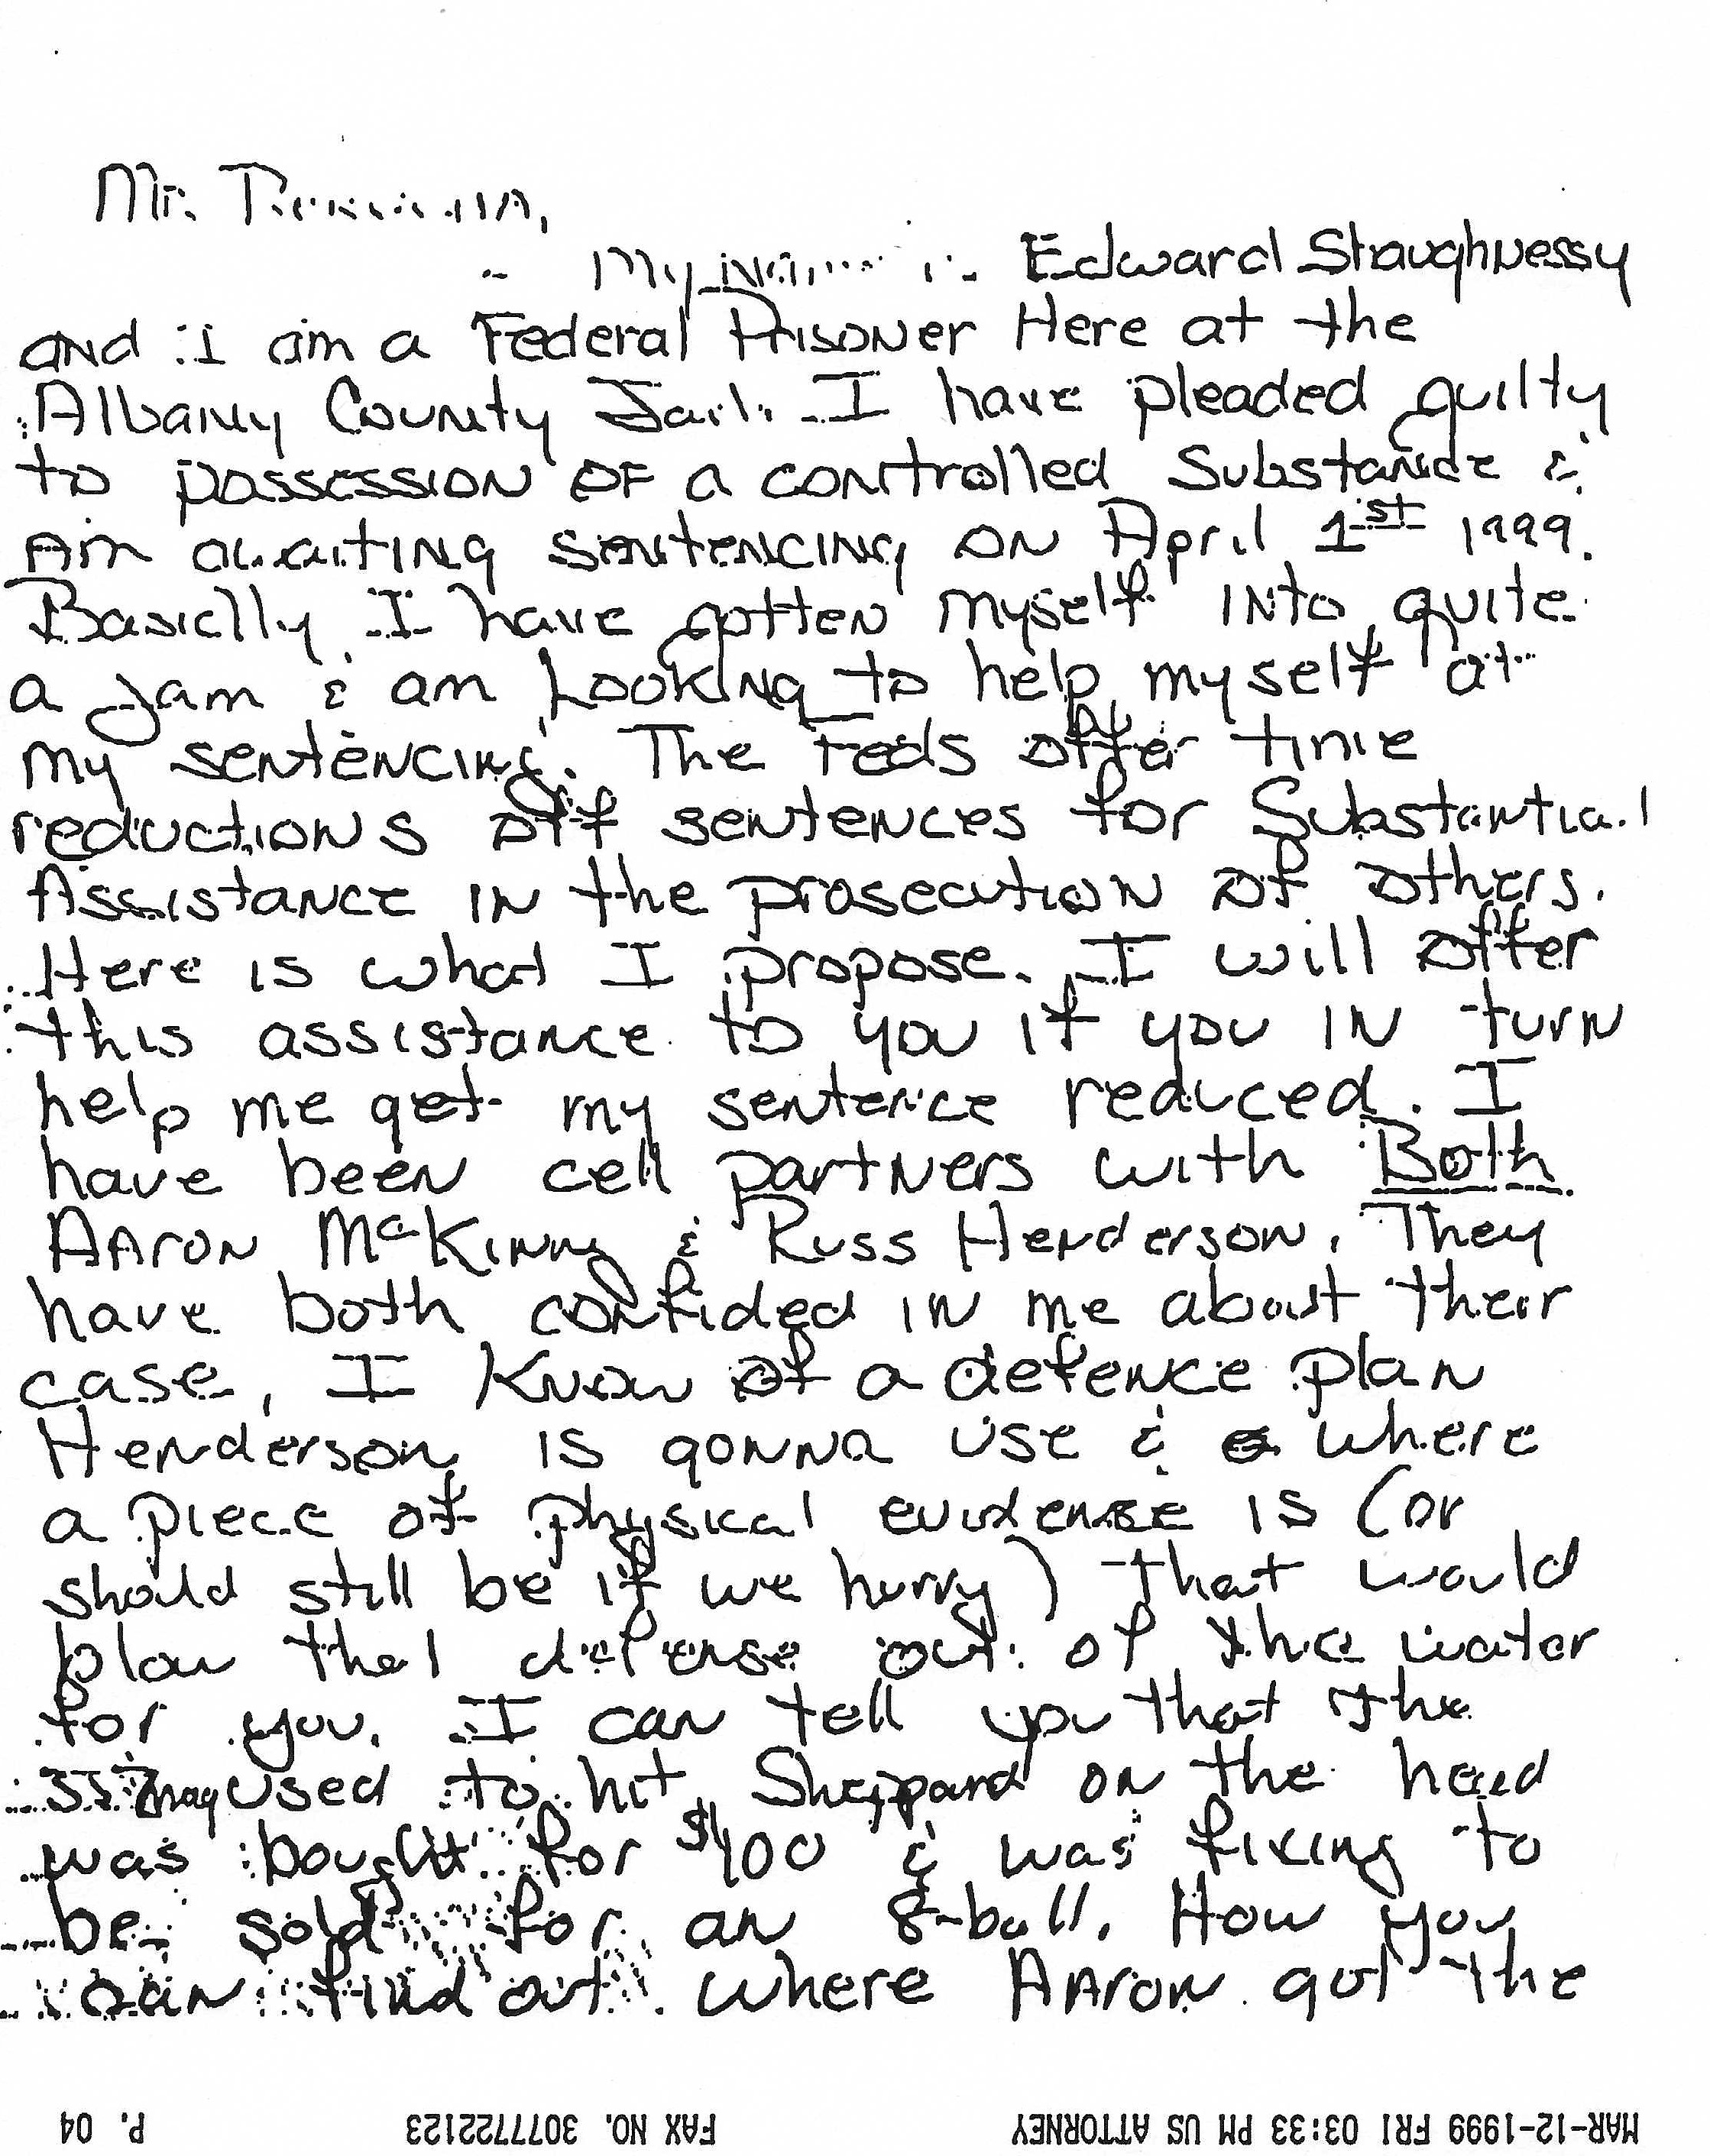 Mr.
My Name is Edward Shaughnessy
and I am a Federal Prisoner Here at the
Albany County Jail. I have pleaded guilty
to possession of a controlled Substance &
Am awaiting sentencing on April 1st 1999.
Basiclly I have gotten myself into quite
a Jam & am Looking to help myself at
my sentencing. The Feds offer time
reductions off sentences for Substantial
Assistance in the prosecution of others.
Here is what I propose. I will offer
this assistance to you if you in turn
help me get my sentence reduced. I
have been cell partners with Both
Aaron McKinny & Russ Henderson. They
have both confided in me about their
case, I know of a defence plan
Henderson is gonna use & where
a piece of physical evidence is (or
should still be if we hurry) that would
blow that defense out of the water
for you. I can tell you that the
mag used to hit Sheppard on the head
was bought for $100 & was fixing to
be sold for an 8-ball. How you
can find out where Aaron got the
MAR-12-1999 FRI 03:33 PM US ATTORNEY FAX NO. 3077722123 P. 04